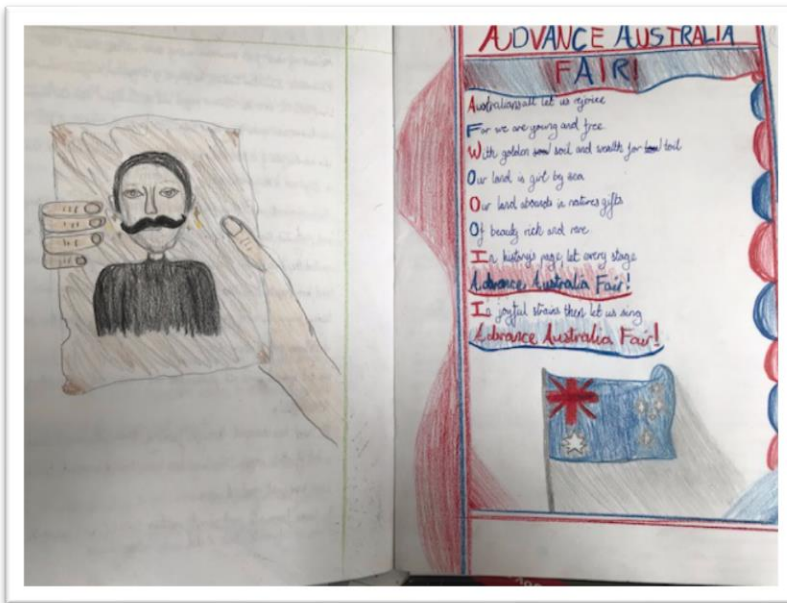 ADVANCE AUSTRALIA
FAIR!
Australians all let us rejoice
For we are young and free
With golden soil and wealth for toil
Our land is girt by sea
Our land abounds in natures gifts
Of beauty rich and rare
In history's page, let every stage
Advance Australia Fair!
In joyful strains then let us sing
Advance Australia Fair!